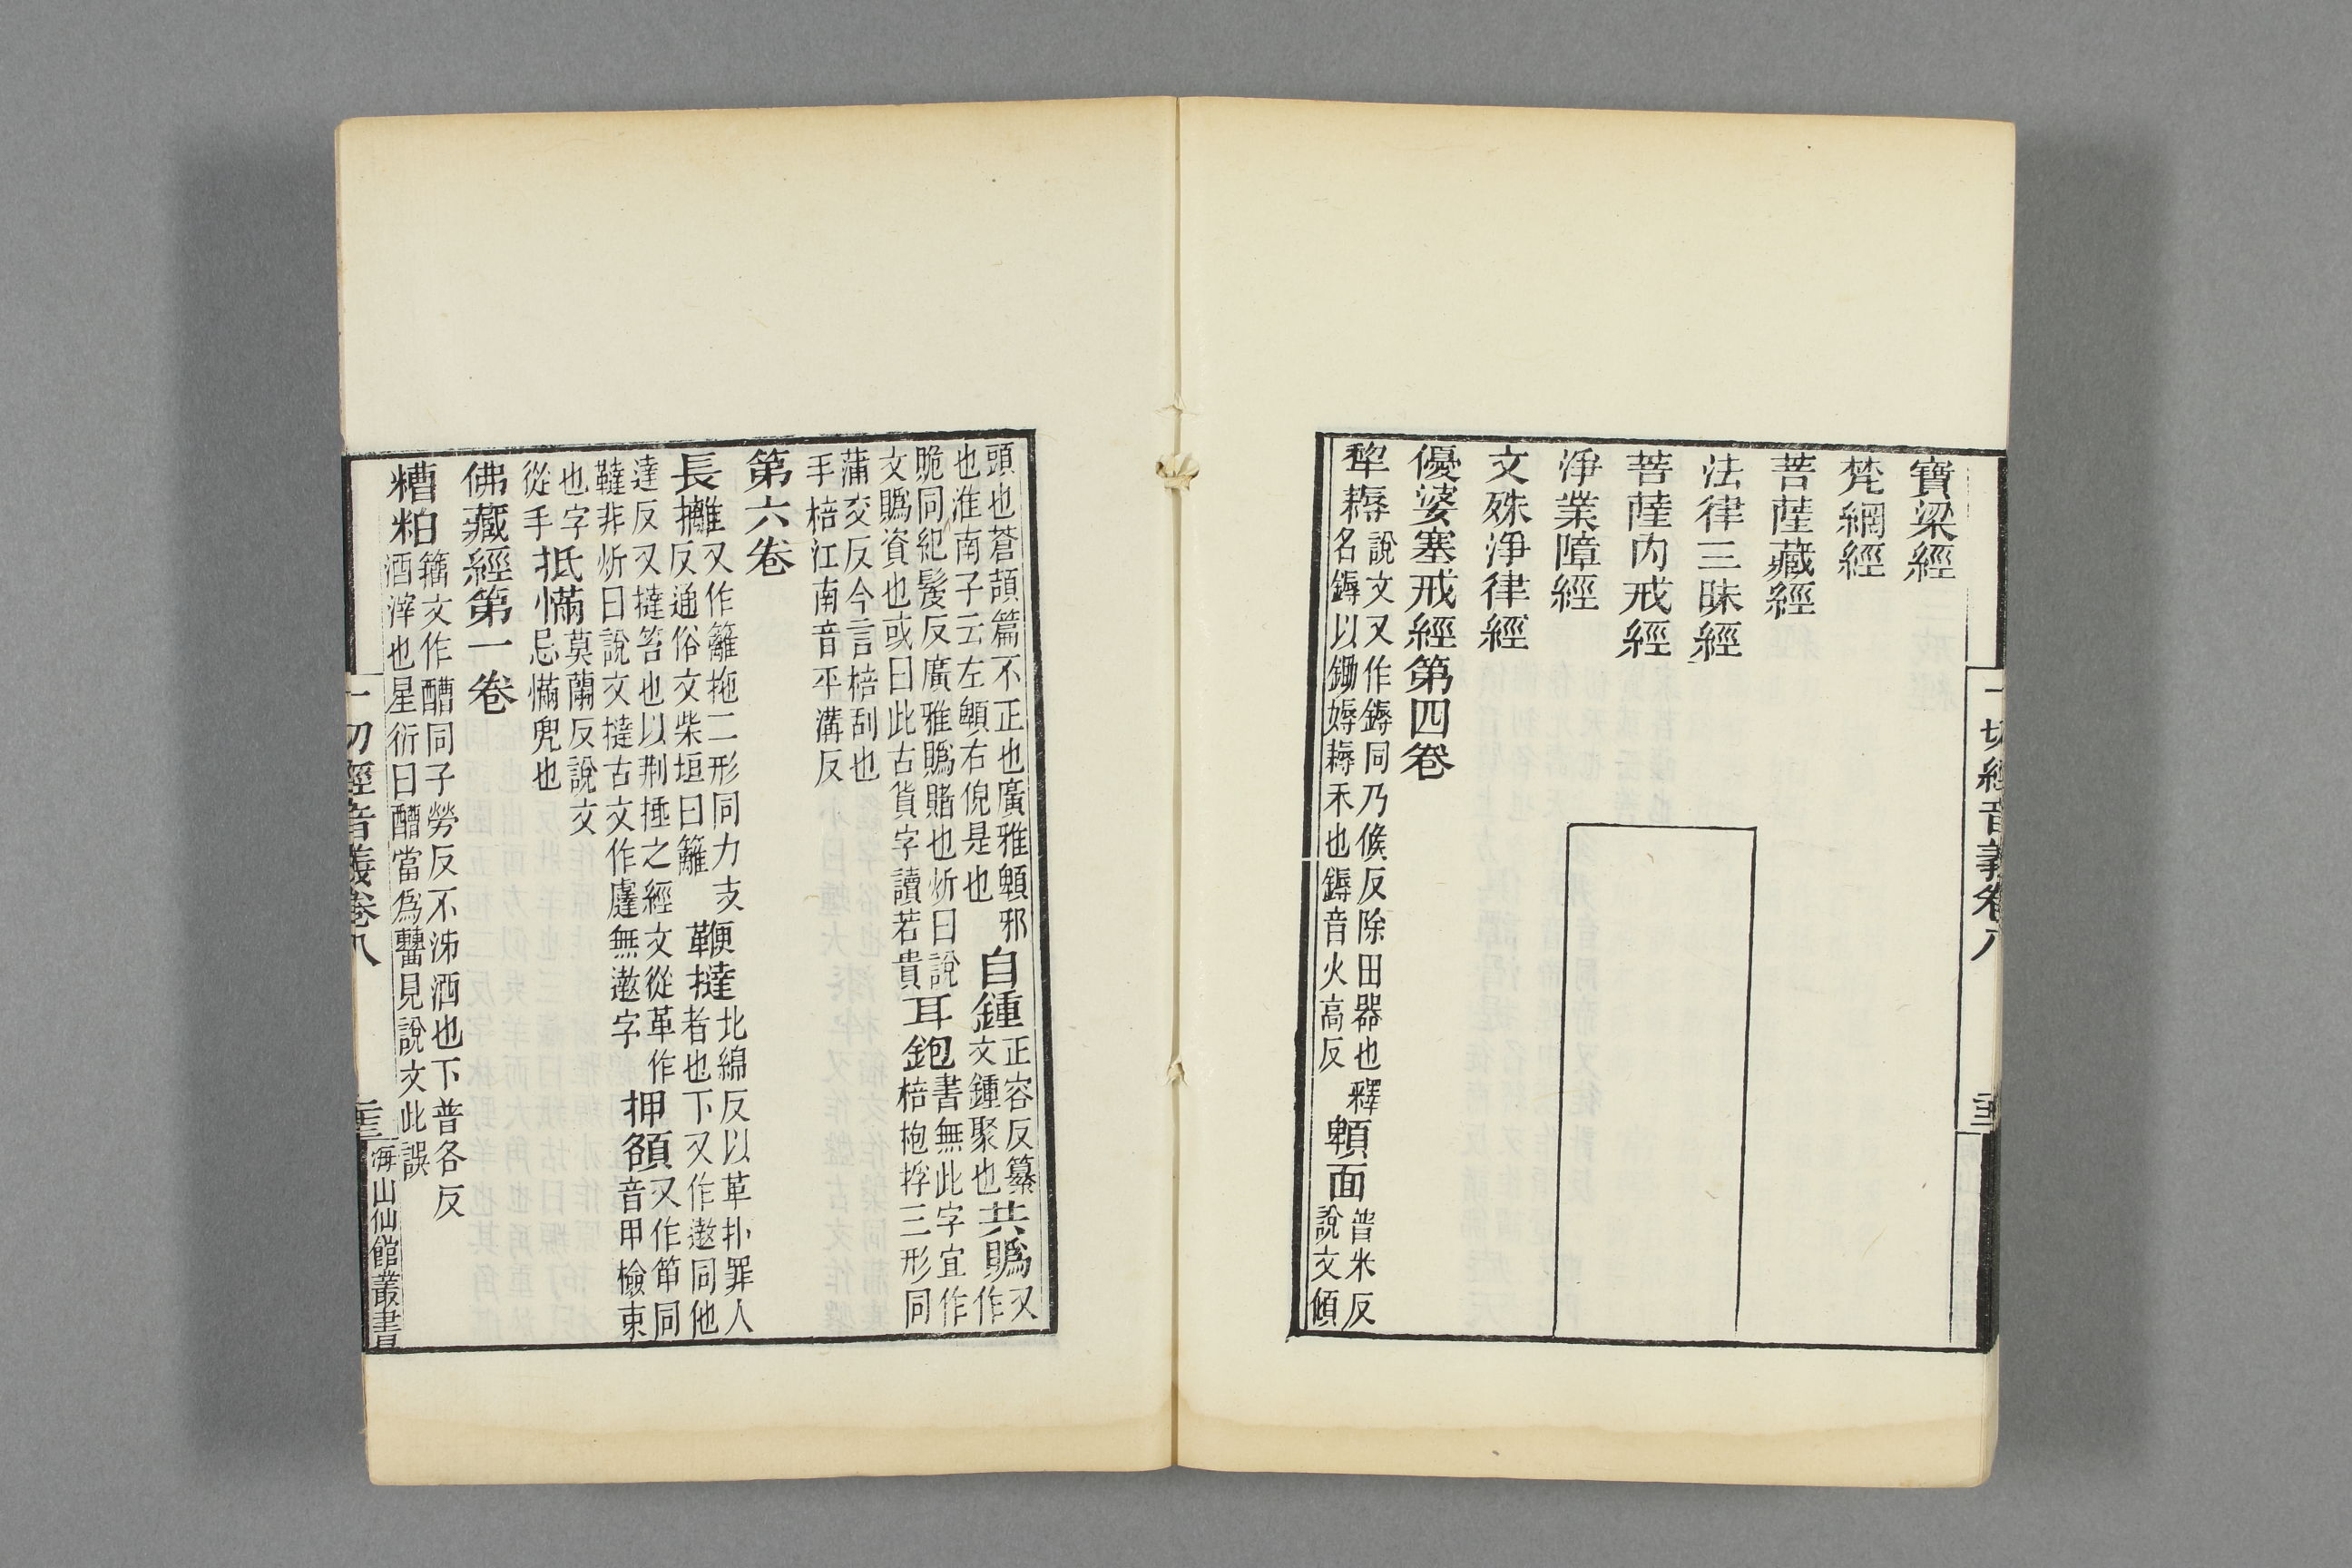 寶梁經
梵網經
菩薩藏經
法律三昧經
菩薩內戒經
淨業障經
文殊淨律經
優婆塞戒經第四卷
犂耨說文又作鎒同乃候反除田器也釋
名鎒以鋤媷耨禾也鎒音火高反
頼面普米反
說文傾
頭也蒼頡篇不正也廣雅頼邪
也淮南子云左頼右倪是也
自鍾正容反纂
文鍾聚也
共賵又作
脆同紀髮反廣雅賵賭也炘曰說
文賵資也或曰此古貨字讀若貴
耳鉋書無此字宜作
棓枹捊三形同
蒲交反今言棓刮也
手棓江南音平溝反
第六卷
長攡又作籬拖二形同力支
反通俗文柴垣曰籬
鞭撻北綿反以革扑罪人
者也下又作遬同他
達反又撻笞也以荆捶之經文從革作
韃非炘曰說文撻古文作𨔶無遬字
押額又作笚同
音甲檢束
也字
從手
抵㒼莫蘭反說文
忌㒼兜也
佛藏經第一卷
糟粕籍文作醩同子勞反不泲酒也下普各反
酒滓也星衍曰醩當爲𦵩見說文此誤
一切經音義卷八
海山仙館叢書